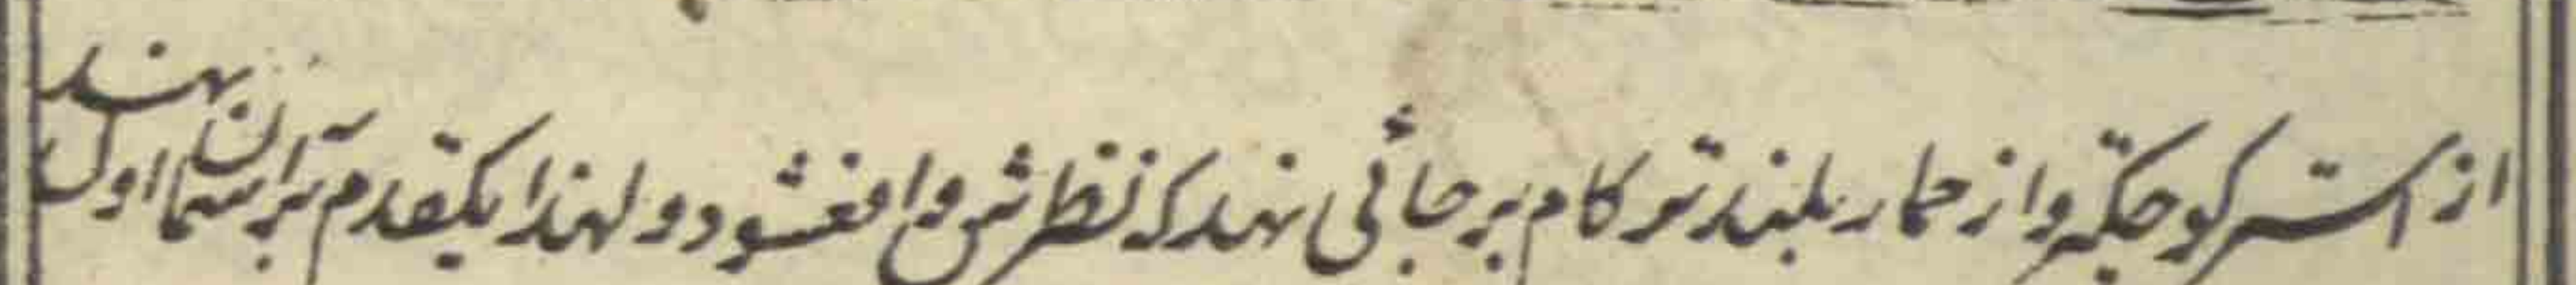 از استر کوچکتر و از حمار بلندتر و کام بر جائی نهد که نظرش واقع شود و لهذا بیکقدم بر آسمان اول نهند